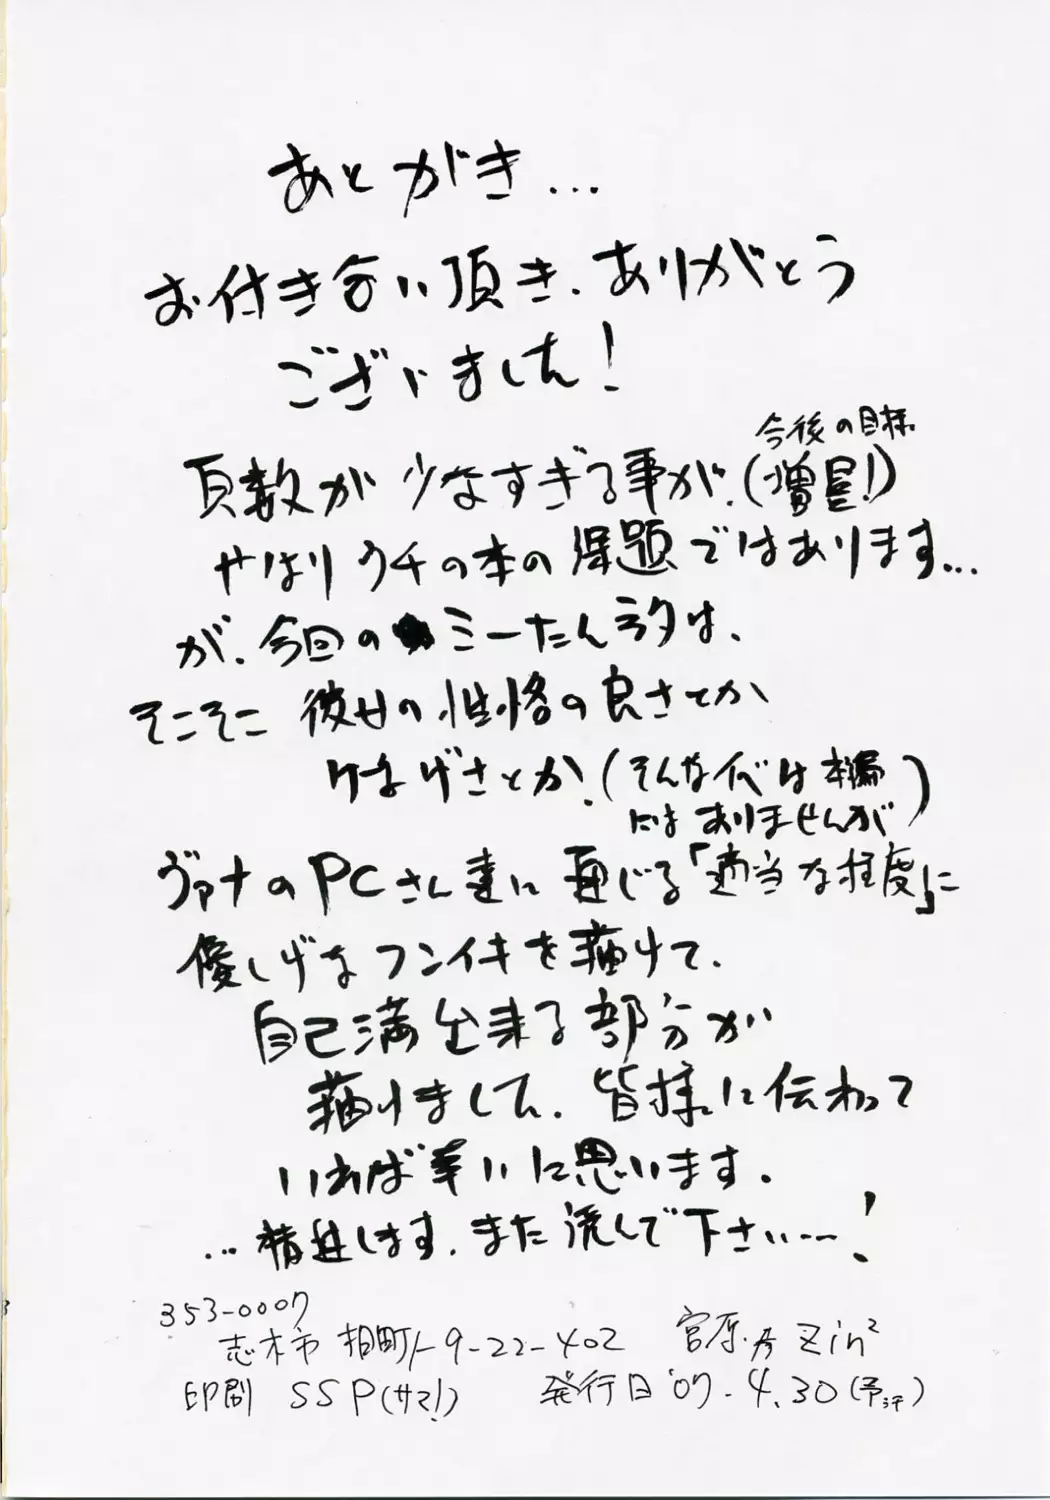 あとがき...
お付き合い頂き、ありがとう
ございました!
今後の目標
頁数が少なすぎる事が、(増量!)
やはりウチの本の課題ではあります...
が、今回のミーたんネタは、
そこそこ彼女の性格の良さとか
けなげさとか、(そんなイベは本編
にはありませんが)
ヴァナのPCさん達に通じる「適当な程度」に
優しげなフンイキを描けて、
自己満出来る部分が
描けました、皆様に伝わって
いれば幸いに思います。
...精進します、また読んで下さい……!
353-0007
志木市柏町1-9-22-402 宮原 Zin²
印刷 SSP(サマ!) 発行日'07.4.30(予定)